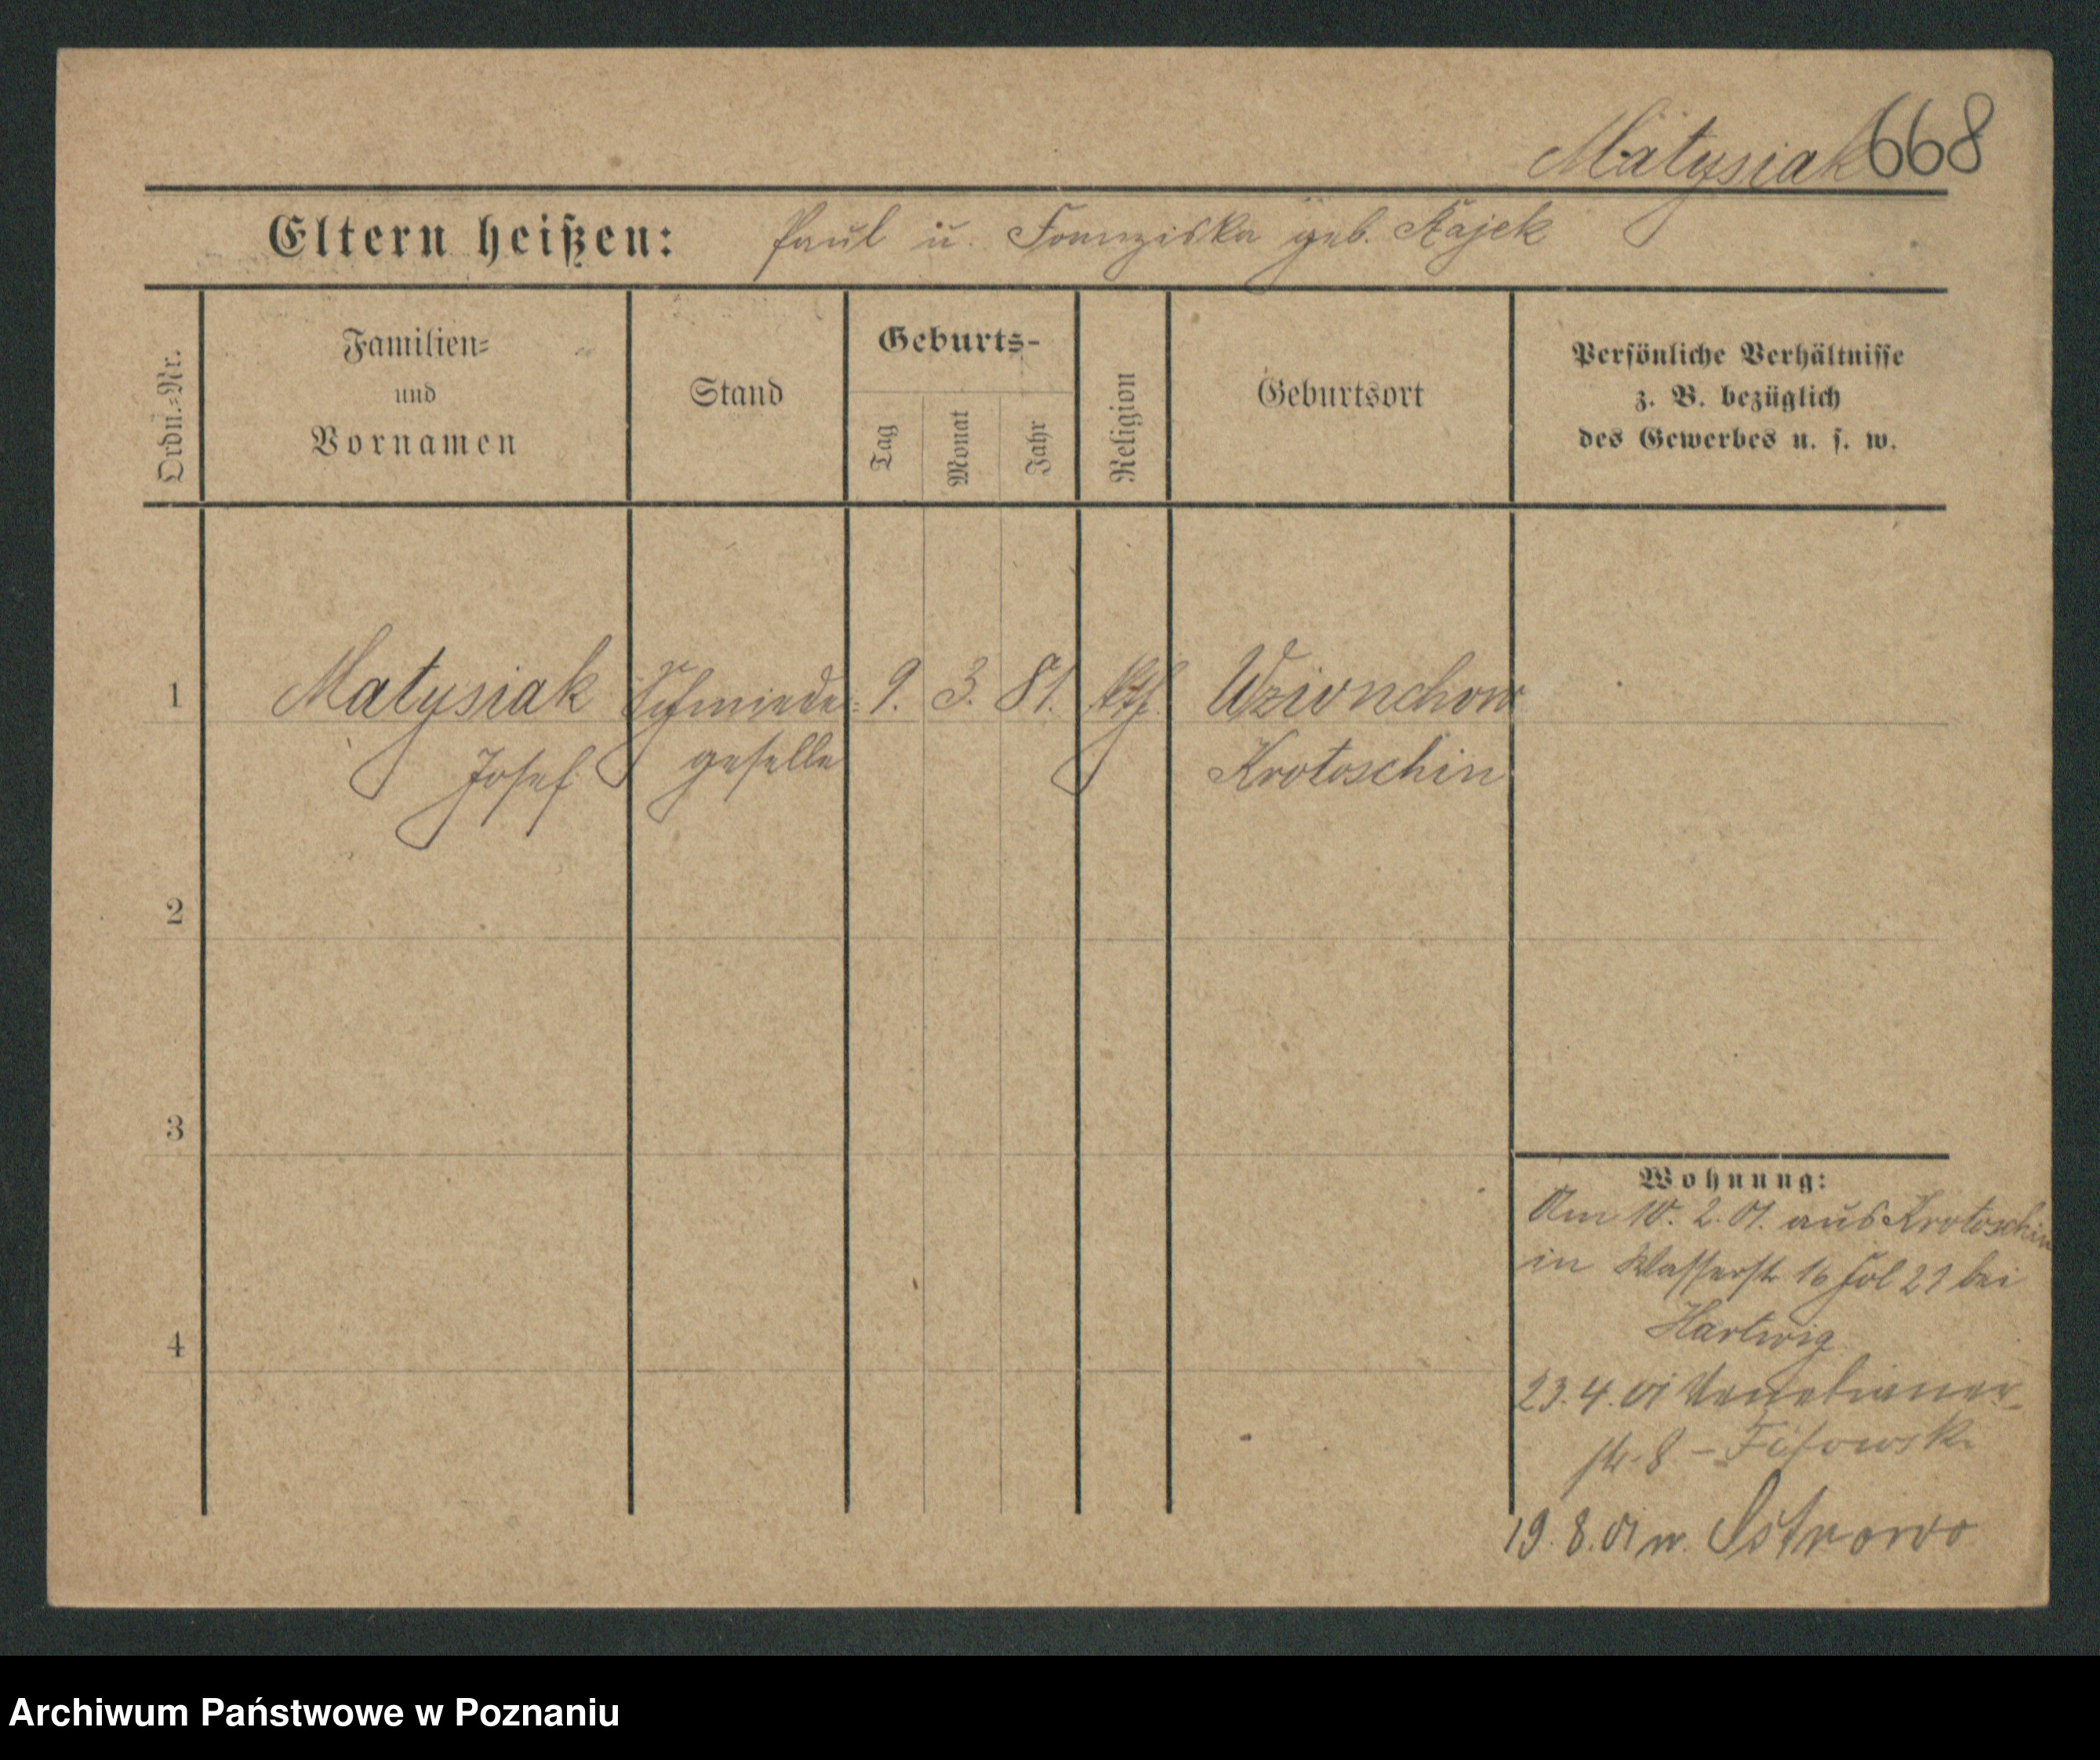 Matysiak 668
Eltern heißen: Paul u. Franziska geb. Kajek
Ordn.=Nr.
Familien=
und
Vornamen
Stand
Geburts-
Tag
Monat
Jahr
Religion
Geburtsort
Persönliche Verhältnisse
z. B. bezüglich
des Gewerbes u. s. w.
1 Matysiak Schmiede= 9. 3. 81. kth. Wzionchow
Josef geselle Krotoschin
2
3
4
Wohnung:
Am 10. 2. 01. aus Krotoschin
in Wasserstr 16 Fol 21 bei
Hartwig
23. 4. 01 Venetianer-
str. 8 –
19. 8. 01 n. Ostrowo
Archiwum Państwowe w Poznaniu